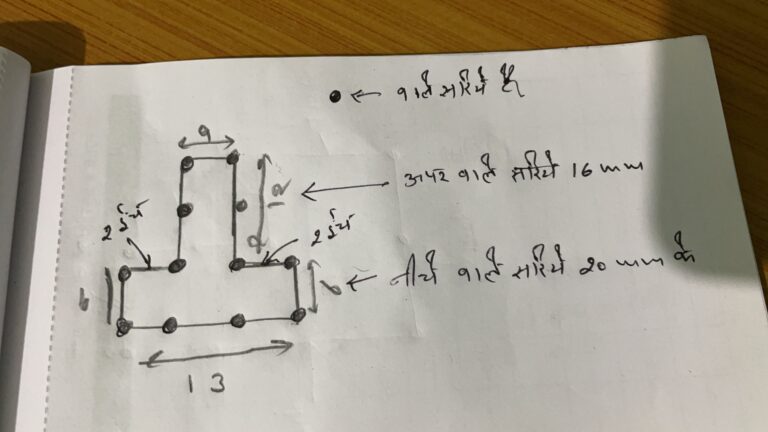 ← वाले सरिये है
9
← ऊपर वाले सरिये 16 mm
12
2 इंच
2 इंच
6
6 ← नीचे वाले सरिये 20 mm के
13